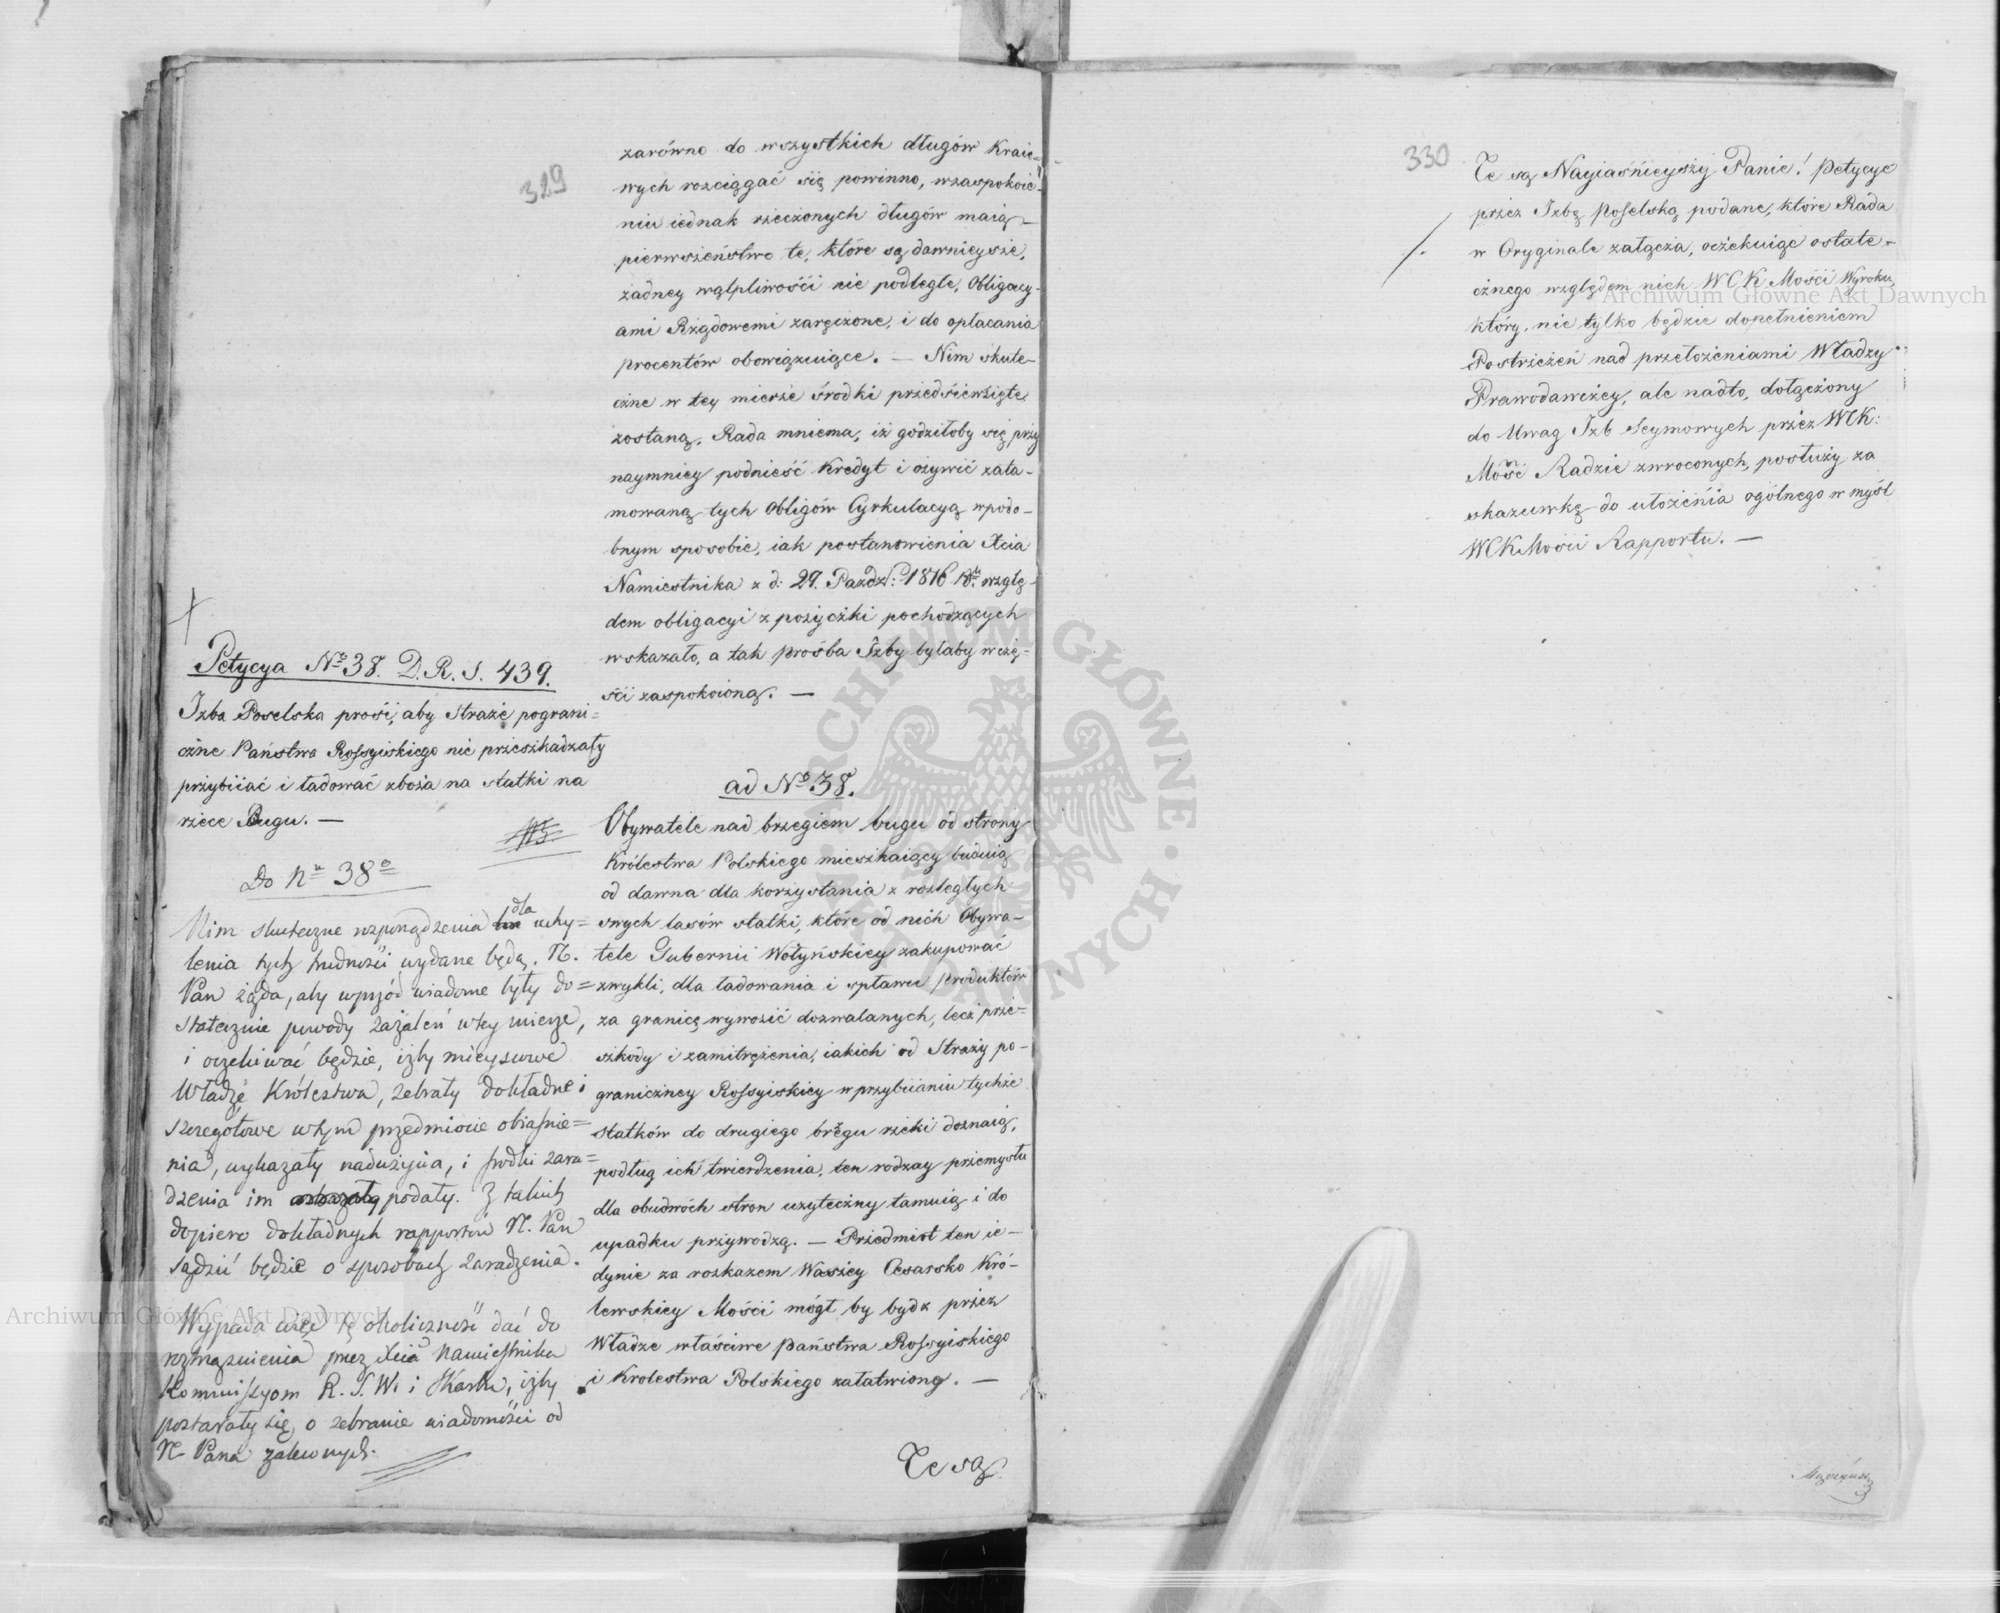 329
zarówno do wszystkich długów Kraio-
wych rozciągać się powinno, wzaspokoie-
niu iednak rzeczonych długów maią
pierwszeństwo te, które są dawnieysze,
żadney wątpliwości nie podległe, Obligacy-
ami Rządowemi zaręczone, i do opłacania
procentów obowiązuiące. — Nim skute-
czne w tey mierze środki przedsięwzięte
zostaną, Rada mniema, iż godziłoby się przy
naymniey podnieść Kredyt i ożywić zata-
mowaną tych Obligów Cyrkulacyą wpodo-
bnym sposobie, iak postanowienia Xcia
Namiestnika z d: 29. Paźdz: 1816 Rº. wzglę-
dem obligacyi z pożyczki pochodzących
wskazało, a tak prośba Izby byłaby wczę-
ści zaspokoioną. —
Petycya Nº 38. D. R. S. 439.
Izba Poselska prosi, aby Straże pograni=
czne Państwa Rossyiskiego nie przeszkadzały
przybiiać i ładować zboża na statki na
rzece Bugu. —
Do Nru 38º
Nim skuteczne rozporządzenia dla uchy=
lenia tych trudności wydane będą, N.
Pan żąda, aby wprzód wiadome były do=
statecznie powody zażaleń w tey mierze,
i oczekiwać będzie, iżby mieyscowe
Władze Królestwa, zebrały dokładne i
szczegółowe w tym przedmiocie obiaśnie=
nia, wykazały nadużycia, i środki zara=
dzenia im podały. Z takich
dopiero dokładnych rapportów N. Pan
sądzić będzie o sposobach zaradzenia.
Wypada więc tę okoliczność dać do
rozpoznania przez Xcia Namiestnika
Kommissyom R. S. W. i Skarbu, iżby
postarały się o zebranie wiadomości od
N. Pana zaleconych.
ad Nº 38.
Obywatele nad brzegiem bugu od strony
Królestwa Polskiego mieszkaiący buduią
od dawna dla korzystania z rozległych
swych lasów statki, które od nich Obywa-
tele Gubernii Wołyńskiey zakupować
zwykli, dla ładowania i spławu produktów
za granicę wywozić dozwalanych, lecz prze-
szkody i zamitrężenia, iakich od Straży po-
graniczney Rossyiskiey w przybiianiu tychże
statków do drugiego brzegu rzeki doznaią,
podług ich twierdzenia, ten rodzay przemysłu
dla obudwóch stron użyteczny tamuią i do
upadku przywodzą. — Przedmiot ten ie-
dynie za rozkazem Waszey Cesarsko Kró-
lewskiey Mości mógł by bydź przez
Władze właściwe Państwa Rossyiskiego
i Krolestwa Polskiego załatwiony. —
Te są
330
Te są Nayiaśnieyszy Panie! Petycye
przez Izbę Poselską podane, które Rada
w Oryginale załącza, oczekuiąc ostate-
cznego względem nich WCK Mości Wyroku,
który, nie tylko będzie dopełnieniem
Postrzeżeń nad przełożeniami Władzy
Prawodawczey, ale nadto, dołączony
do Uwag Izb Seymowych przez WCK:
Mość Radzie zwroconych, posłuży za
skazówkę do ułożenia ogólnego w myśl
WCKMości Rapportu. —
Archiwum Główne Akt Dawnych
Archiwum Główne Akt Dawnych
ARCHIWUM GŁÓWNE AKT DAWNYCH